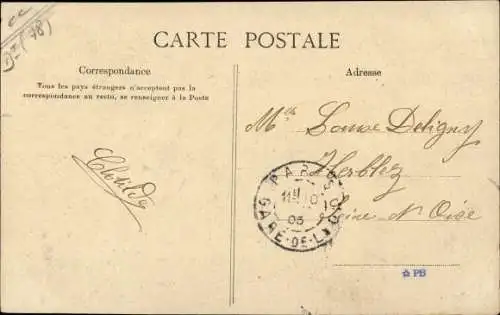 (78)
CARTE POSTALE
Correspondance
Tous les pays étrangers n'acceptent pas la
correspondance au recto, se renseigner à la Poste
Clotilde
Adresse
Mlle Louise Deligny
Herblay
Seine & Oise
PARIS
GARE-DE-LYON
05
PB